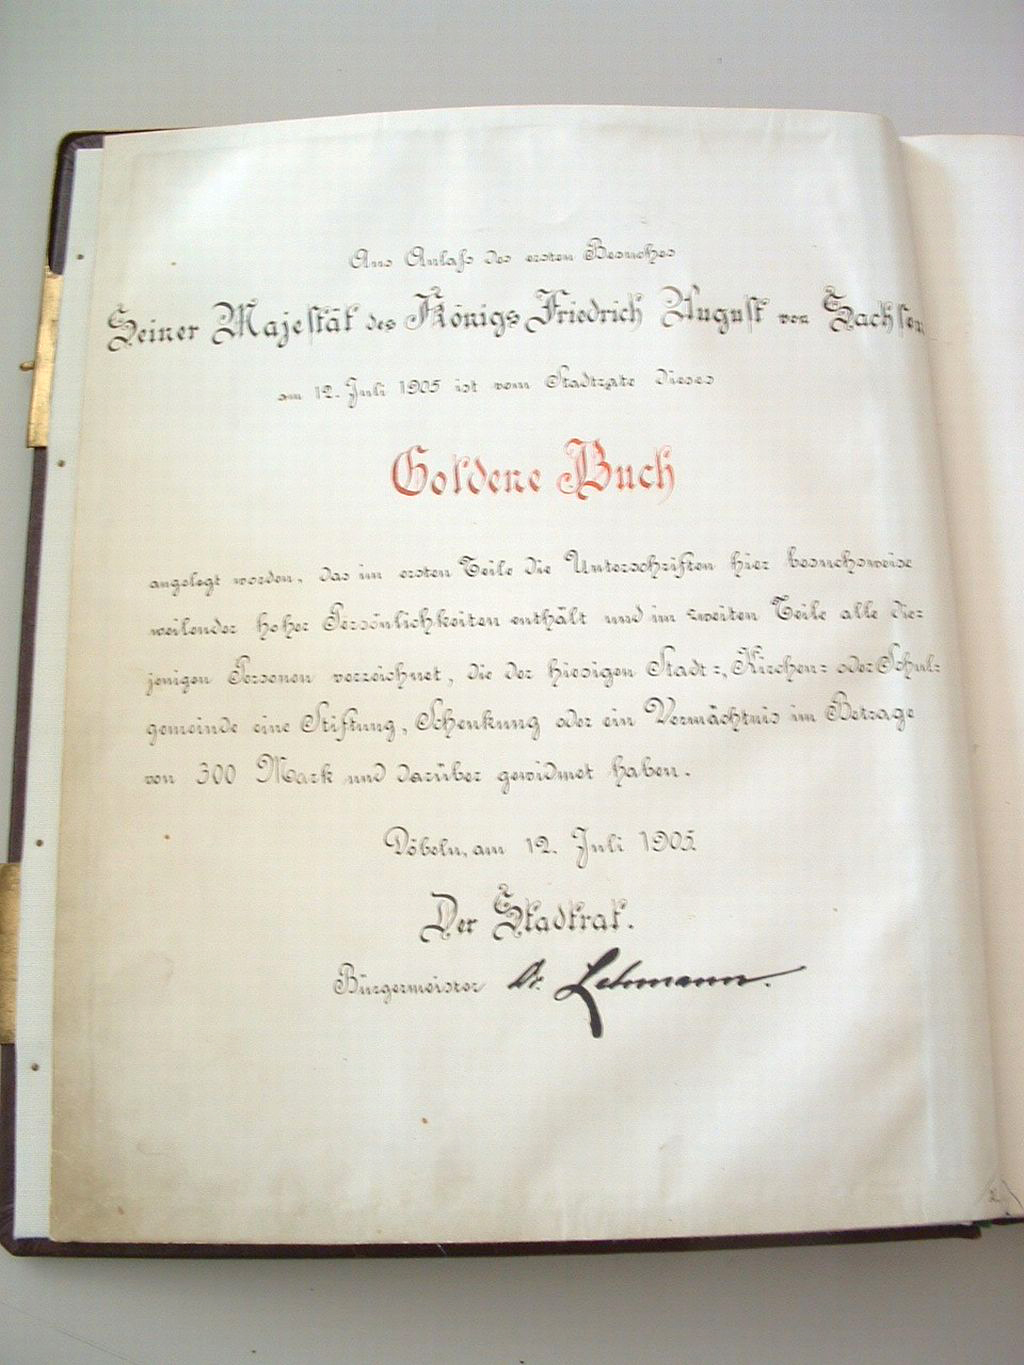 Aus Anlaß des ersten Besuches
Seiner Majestät des Königs Friedrich August von Sachsen
am 12. Juli 1905 ist vom Stadtrate dieses
Goldene Buch
angelegt worden, das im ersten Teile die Unterschriften hier besuchsweise
weilender hoher Persönlichkeiten enthält und im zweiten Teile alle die-
jenigen Personen verzeichnet, die der hiesigen Stadt-, Kirchen- oder Schul-
gemeinde eine Stiftung, Schenkung oder ein Vermächtnis im Betrage
von 300 Mark und darüber gewidmet haben.
Döbeln, am 12. Juli 1905.
Der Stadtrat.
Bürgermeister Dr. Lehmann.